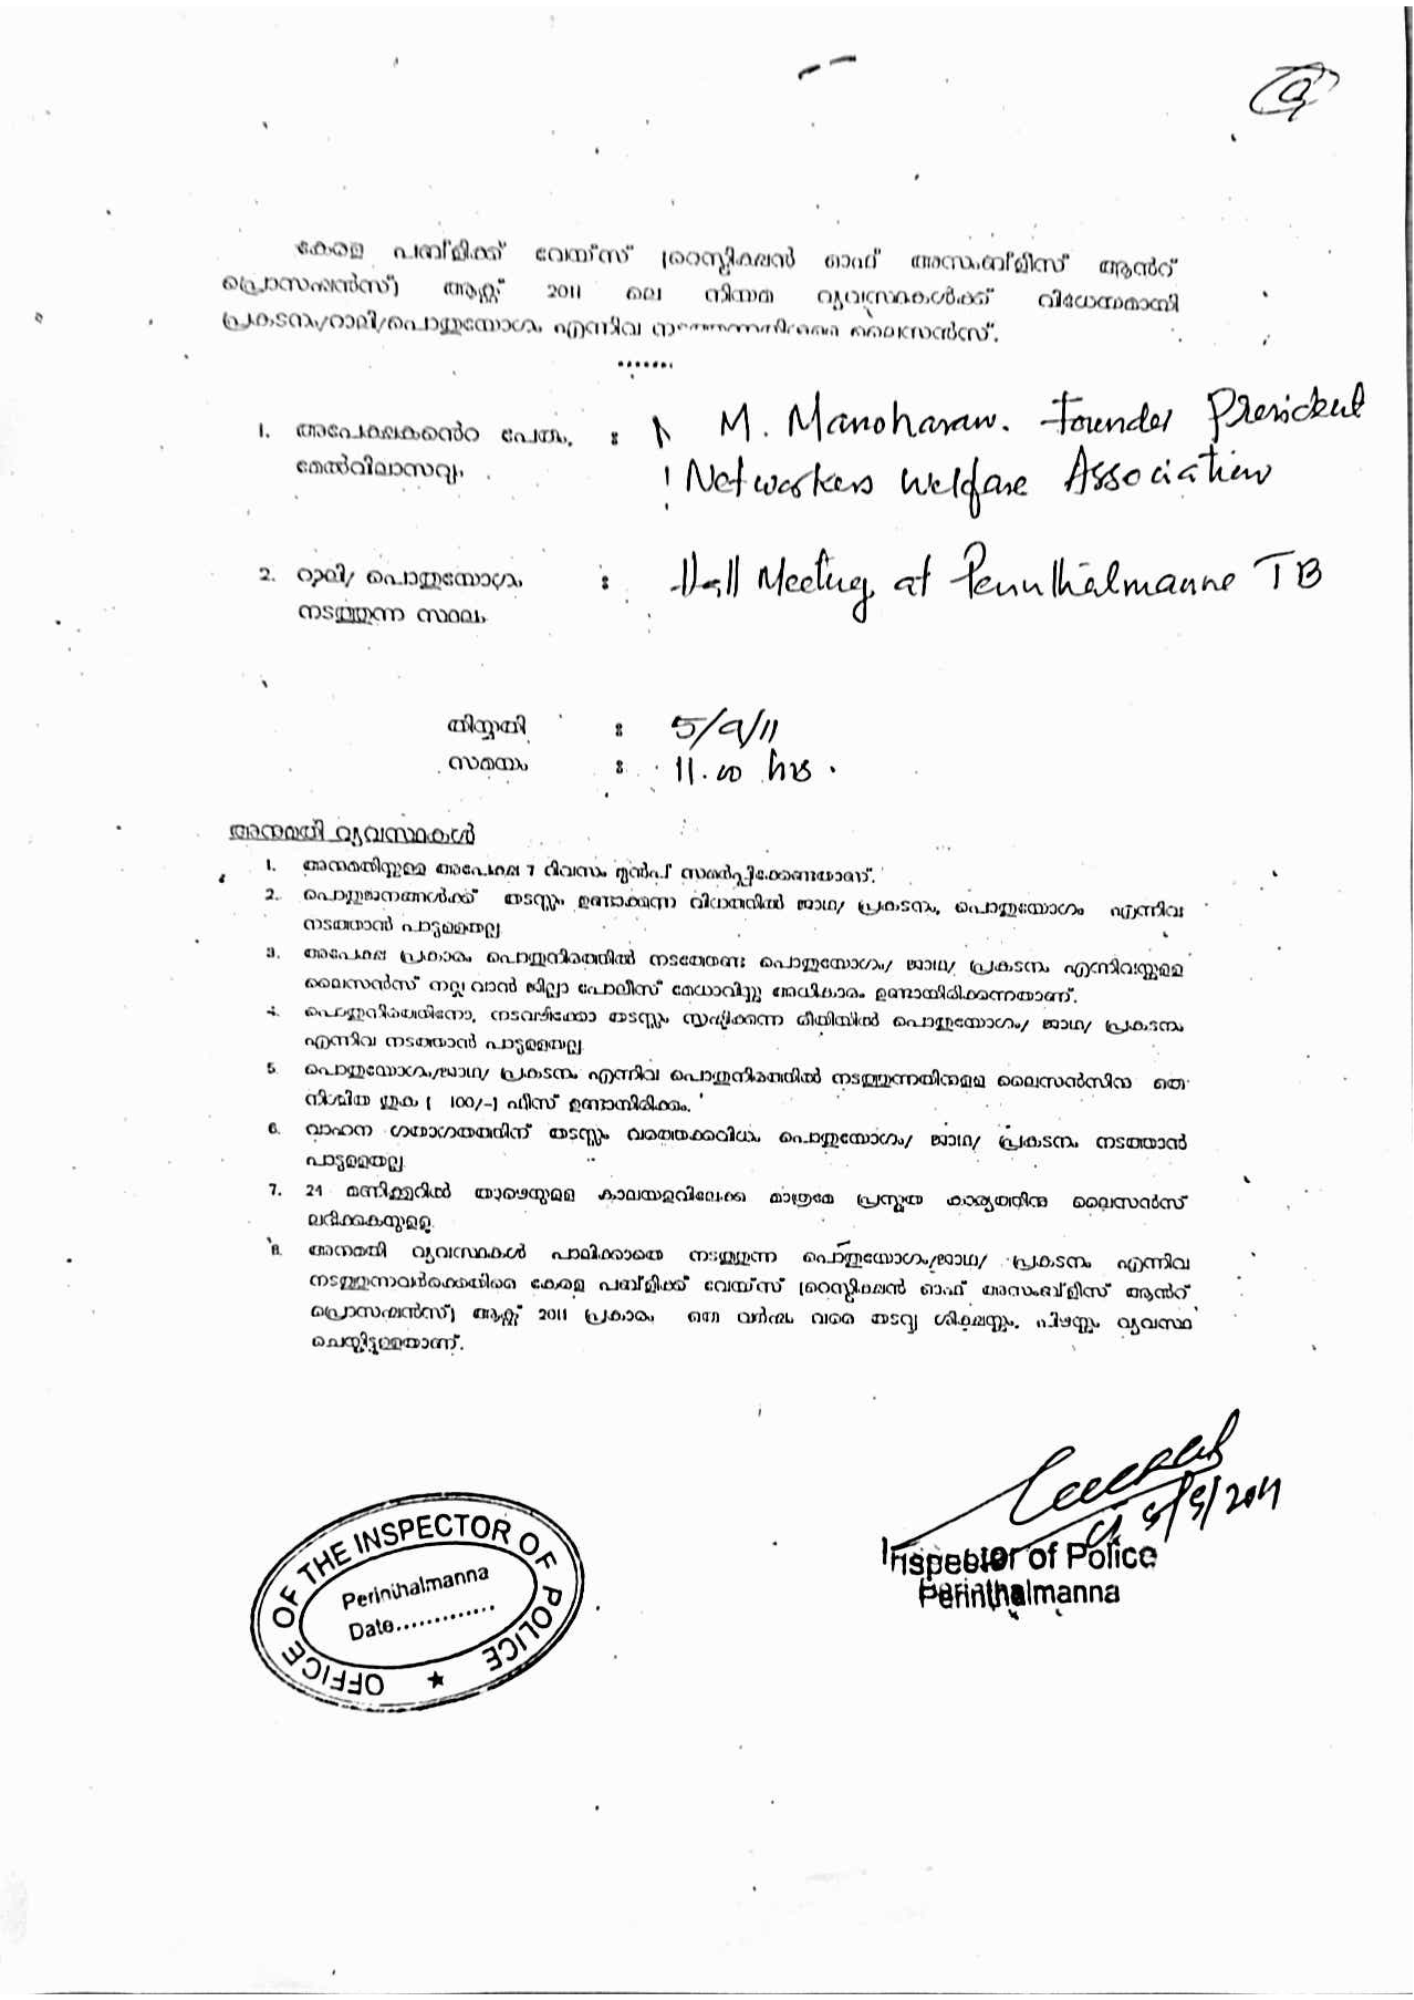 കേരള പബ്ളിക്ക് വേയ്സ് (റെസ്ട്രിക്ഷൻ ഓഫ് അസംബ്ളീസ് ആൻറ്
പ്രൊസഷൻസ്) ആക്റ്റ് 2011 ലെ നിയമ വ്യവസ്ഥകൾക്ക് വിധേയമായി
പ്രകടനം/റാലി/പൊതുയോഗം എന്നിവ ലൈസൻസ്.
.......
1. അപേക്ഷകൻറെ പേരും, : M. Manoharan. Founder President
മേൽവിലാസവും Networkers Welfare Association
2. റാലി/ പൊതുയോഗം : Hall Meeting at Perinthalmanna TB
നടത്തുന്ന സ്ഥലം
തിയ്യതി : 5/9/11
സമയം : 11.00 hrs.
അനുമതി വ്യവസ്ഥകൾ
1. അനുമതിയ്ക്കുള്ള അപേക്ഷ 7 ദിവസം മുൻപ് സമർപ്പിക്കേണ്ടതാണ്.
2. പൊതുജനങ്ങൾക്ക് തടസ്സം ഉണ്ടാക്കുന്ന വിധത്തിൽ ജാഥ/ പ്രകടനം, പൊതുയോഗം എന്നിവ
നടത്താൻ പാടുള്ളതല്ല
3. അപേക്ഷ പ്രകാരം പൊതുനിരത്തിൽ നടത്തേണ്ട പൊതുയോഗം/ ജാഥ/ പ്രകടനം എന്നിവയ്ക്കുള്ള
ലൈസൻസ് നല്കുവാൻ ജില്ലാ പോലീസ് മേധാവിയ്ക്കു അധികാരം ഉണ്ടായിരിക്കുന്നതാണ്.
4. പൊതുനിരത്തിനോ, നടവഴിക്കോ തടസ്സം സൃഷ്ടിക്കുന്ന രീതിയിൽ പൊതുയോഗം/ ജാഥ/ പ്രകടനം
എന്നിവ നടത്താൻ പാടുള്ളതല്ല
5. പൊതുയോഗം/ജാഥ/ പ്രകടനം എന്നിവ പൊതുനിരത്തിൽ നടത്തുന്നതിനുള്ള ലൈസൻസിനു ഒരു
നിശ്ചിത തുക ( 100/-) ഫീസ് ഉണ്ടായിരിക്കും.
6. വാഹന ഗതാഗതത്തിന് തടസ്സം വരത്തക്കവിധം പൊതുയോഗം/ ജാഥ/ പ്രകടനം നടത്താൻ
പാടുള്ളതല്ല
7. 24 മണിക്കൂറിൽ താഴെയുള്ള കാലയളവിലേക്കു മാത്രമേ പ്രസ്തുത കാര്യത്തിനു ലൈസൻസ്
ലഭിക്കുകയുള്ളു
8. അനുമതി വ്യവസ്ഥകൾ പാലിക്കാതെ നടത്തുന്ന പൊതുയോഗം/ജാഥ/ പ്രകടനം എന്നിവ
നടത്തുന്നവർക്കെതിരെ കേരള പബ്ളിക്ക് വേയ്സ് (റെസ്ട്രിക്ഷൻ ഓഫ് അസംബ്ളീസ് ആൻറ്
പ്രൊസഷൻസ്) ആക്റ്റ് 2011 പ്രകാരം ഒരു വർഷം വരെ തടവു ശിക്ഷയും, പിഴയും വ്യവസ്ഥ
ചെയ്തിട്ടുള്ളതാണ്.
5/9/2011
Inspector of Police
Perinthalmanna
OFFICE OF THE INSPECTOR OF POLICE ★
Perinthalmanna
Date.............